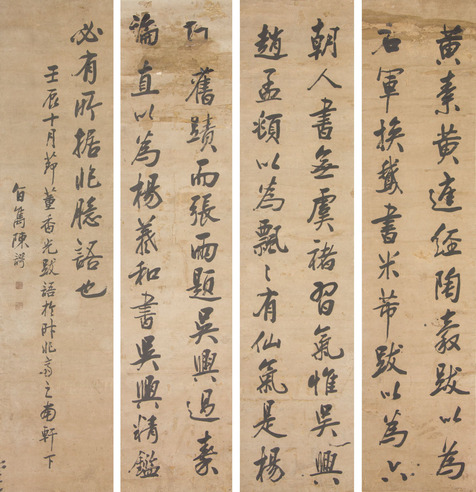 黃素黃庭經陶穀跋以為
右軍換鵞書米芾跋以為六
朝人書無虞褚習氣惟吳興
趙孟頫以為飄〻有仙氣是楊
許舊蹟而張雨題吳興過秦
論直以為楊羲和書吳興精鑑
必有所据非臆語也
壬辰十月節董香光跋語於之南軒下
雋陳